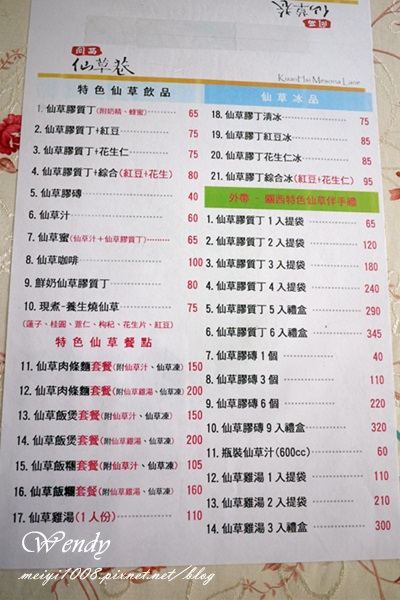 仙草巷
關西
仙草巷
KuanHsi Mesona Lane
特色仙草飲品
1. 仙草膠質丁(附奶精、蜂蜜) 65
2. 仙草膠質丁+紅豆 75
3. 仙草膠質丁+花生仁 75
4. 仙草膠質丁+綜合(紅豆+花生) 80
5. 仙草膠磚 40
6. 仙草汁 60
7. 仙草蜜(仙草汁+仙草膠質丁) 65
8. 仙草咖啡 100
9. 鮮奶仙草膠質丁 80
10. 現煮-養生燒仙草 75
(蓮子、桂圓、薏仁、枸杞、花生片、紅豆)
特色仙草餐點
11. 仙草肉條麵套餐(附仙草汁、仙草凍) 150
12. 仙草肉條麵套餐(附仙草雞湯、仙草凍) 200
13. 仙草飯煲套餐(附仙草汁、仙草凍) 150
14. 仙草飯煲套餐(附仙草雞湯、仙草凍) 200
15. 仙草飯糰套餐(附仙草汁、仙草凍) 105
16. 仙草飯糰套餐(附仙草雞湯、仙草凍) 160
17. 仙草雞湯(1人份) 110
仙草冰品
18. 仙草膠丁清冰 75
19. 仙草膠丁紅豆冰 85
20. 仙草膠丁花生仁冰 85
21. 仙草膠丁綜合冰(紅豆+花生仁) 95
外帶 - 關西特色仙草伴手禮
1. 仙草膠質丁1入提袋 65
2. 仙草膠質丁2入提袋 120
3. 仙草膠質丁3入提袋 180
4. 仙草膠質丁4入提袋 240
5. 仙草膠質丁5入禮盒 290
6. 仙草膠質丁6入禮盒 345
7. 仙草膠磚1個 40
8. 仙草膠磚3個 110
9. 仙草膠磚6個 220
10. 仙草膠磚9入禮盒 320
11. 瓶裝仙草汁(600cc) 60
12. 仙草雞湯1入提袋 110
13. 仙草雞湯2入提袋 210
14. 仙草雞湯3入禮盒 300
Wendy
meiyi1008.pixnet.net/blog